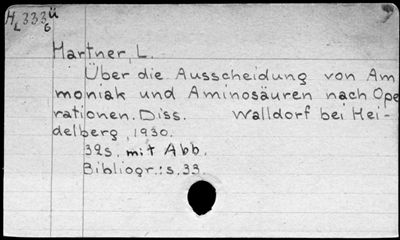 H 333 ü
L 6
Hartner, L.
Über die Ausscheidung von Am
moniak und Aminosäuren nach Ope
rationen. Diss. Walldorf bei Hei-
delberg, 1930.
32s. mit Abb.
Bibliogr.: s. 33.